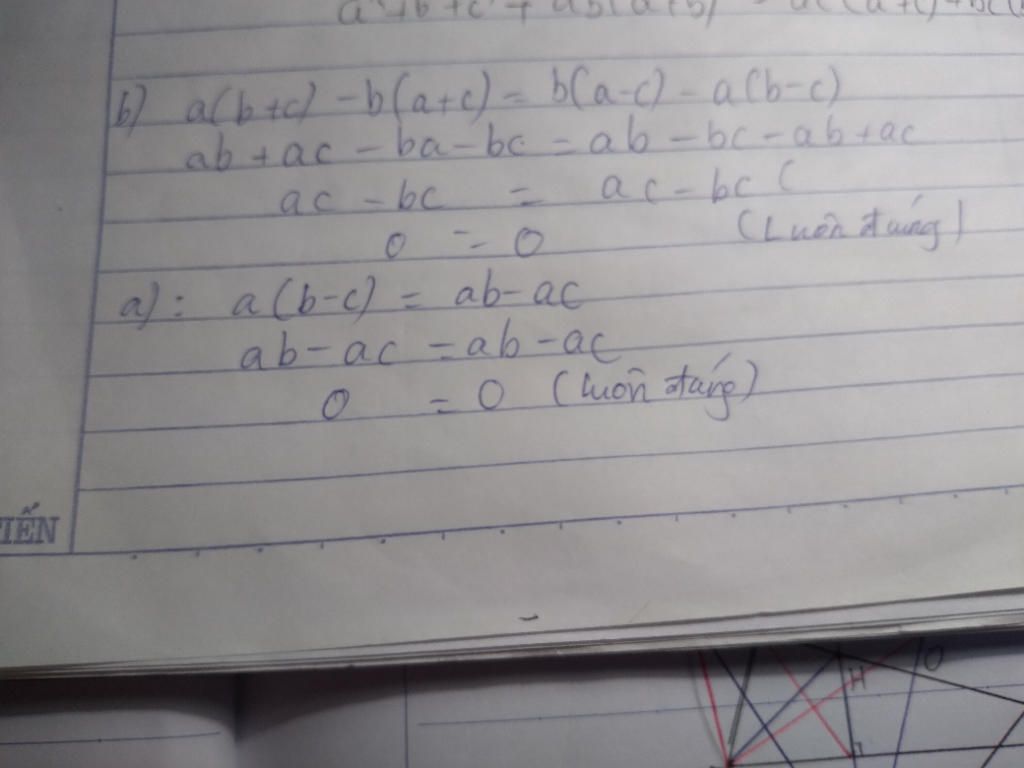 b) a(b+c) - b(a+c) = b(a-c) - a(b-c)
ab + ac - ba - bc = ab - bc - ab + ac
ac - bc = ac - bc (
0 = 0 (Luôn đúng)
a): a(b-c) = ab - ac
ab - ac = ab - ac
0 = 0 (Luôn đúng)
H